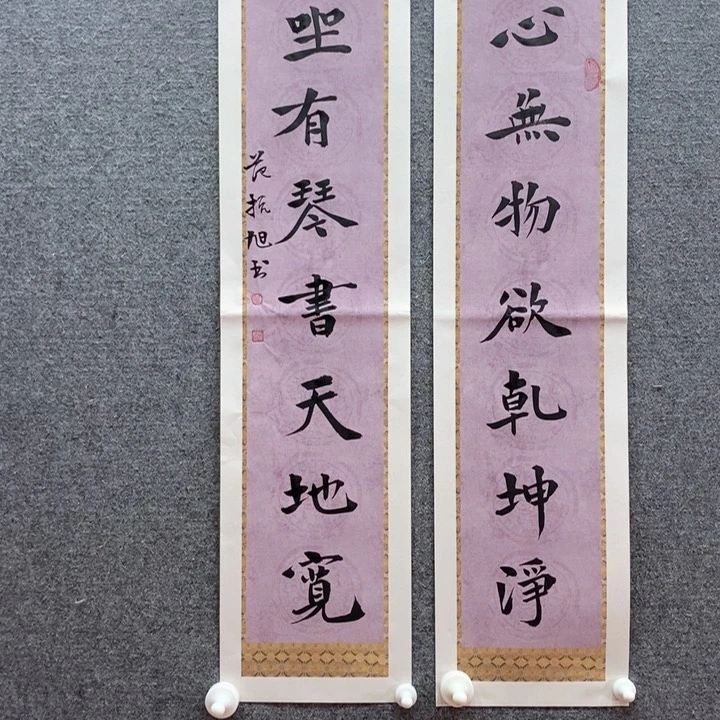 心無物欲乾坤淨
坐有琴書天地寬
范抗旭书